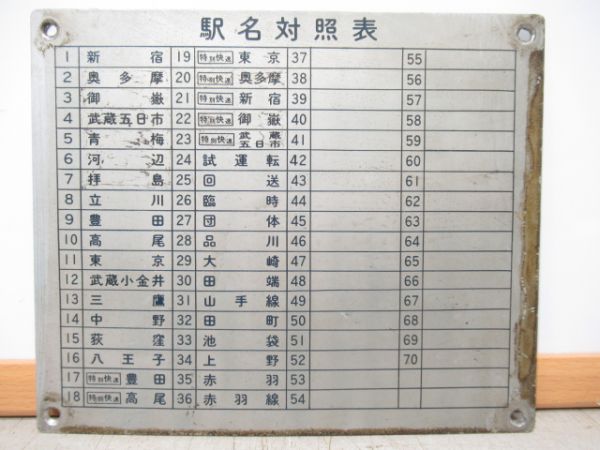 駅名対照表
1 新宿 19 特別快速 東京 37 55
2 奥多摩 20 特別快速 奥多摩 38 56
3 御嶽 21 特別快速 新宿 39 57
4 武蔵五日市 22 特別快速 御嶽 40 58
5 青梅 23 特別快速 武蔵五日市 41 59
6 河辺 24 試運転 42 60
7 拝島 25 回送 43 61
8 立川 26 臨時 44 62
9 豊田 27 団体 45 63
10 高尾 28 品川 46 64
11 東京 29 大崎 47 65
12 武蔵小金井 30 田端 48 66
13 三鷹 31 山手線 49 67
14 中野 32 田町 50 68
15 荻窪 33 池袋 51 69
16 八王子 34 上野 52 70
17 特別快速 豊田 35 赤羽 53
18 特別快速 高尾 36 赤羽線 54